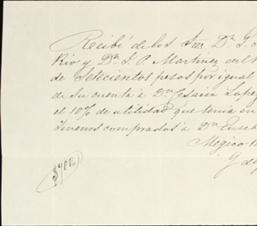 Recibí de los Sres Dn. J. d
Rio y Dn. J. P. Martinez del R
de Setecientos pesos por igual
de su cuenta á Dn. Lopez
el 10% de utilidad que tenia en
Terrenos comprados á Dn. Euseb
Megico
$700.